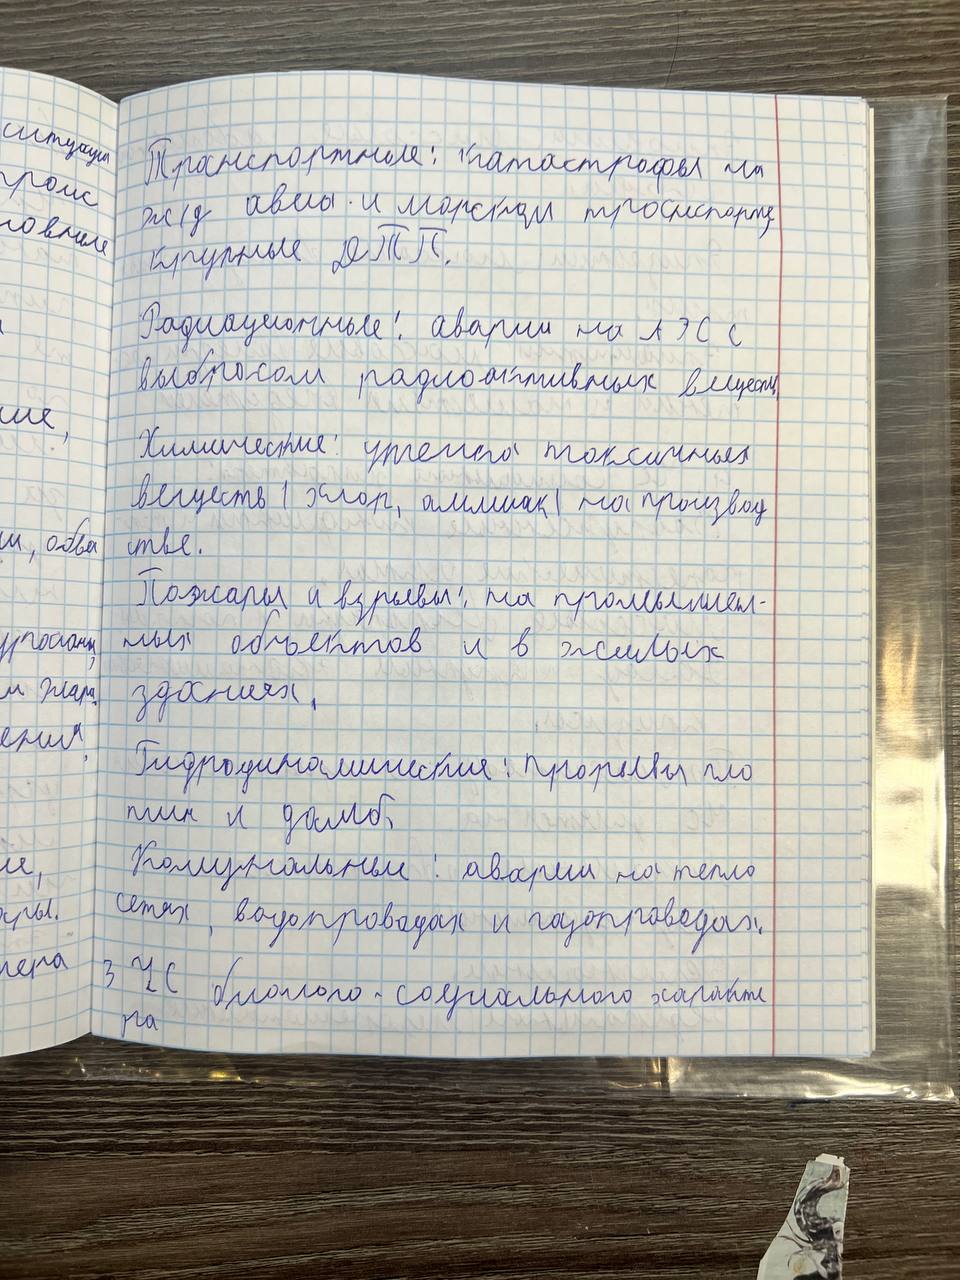 ситуации
проис
новные
ие,
и, обва
ения,
ие,
ары.
Транспортные: катастрофы на
ж/д авиа и морском транспорте,
крупные ДТП.
Радиационные: аварии на АЭС с
выбросом радиоактивных веществ
Химические: утечка токсичных
веществ ( хлор, аммиак ) на производ
стве.
Пожары и взрывы: на промышлен-
ных объектов и в жилых
зданиях.
Гидродинамические: прорывы пло
тин и дамб.
Комунальные: аварии на тепло
сетях, водопроводах и газопроводах.
3 ЧС биолого-социального характе
ра